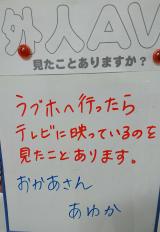 外人AV
見たことありますか?
ラブホへ行ったら
テレビに映っているのを
見たことあります。
おかあさん
あゆか